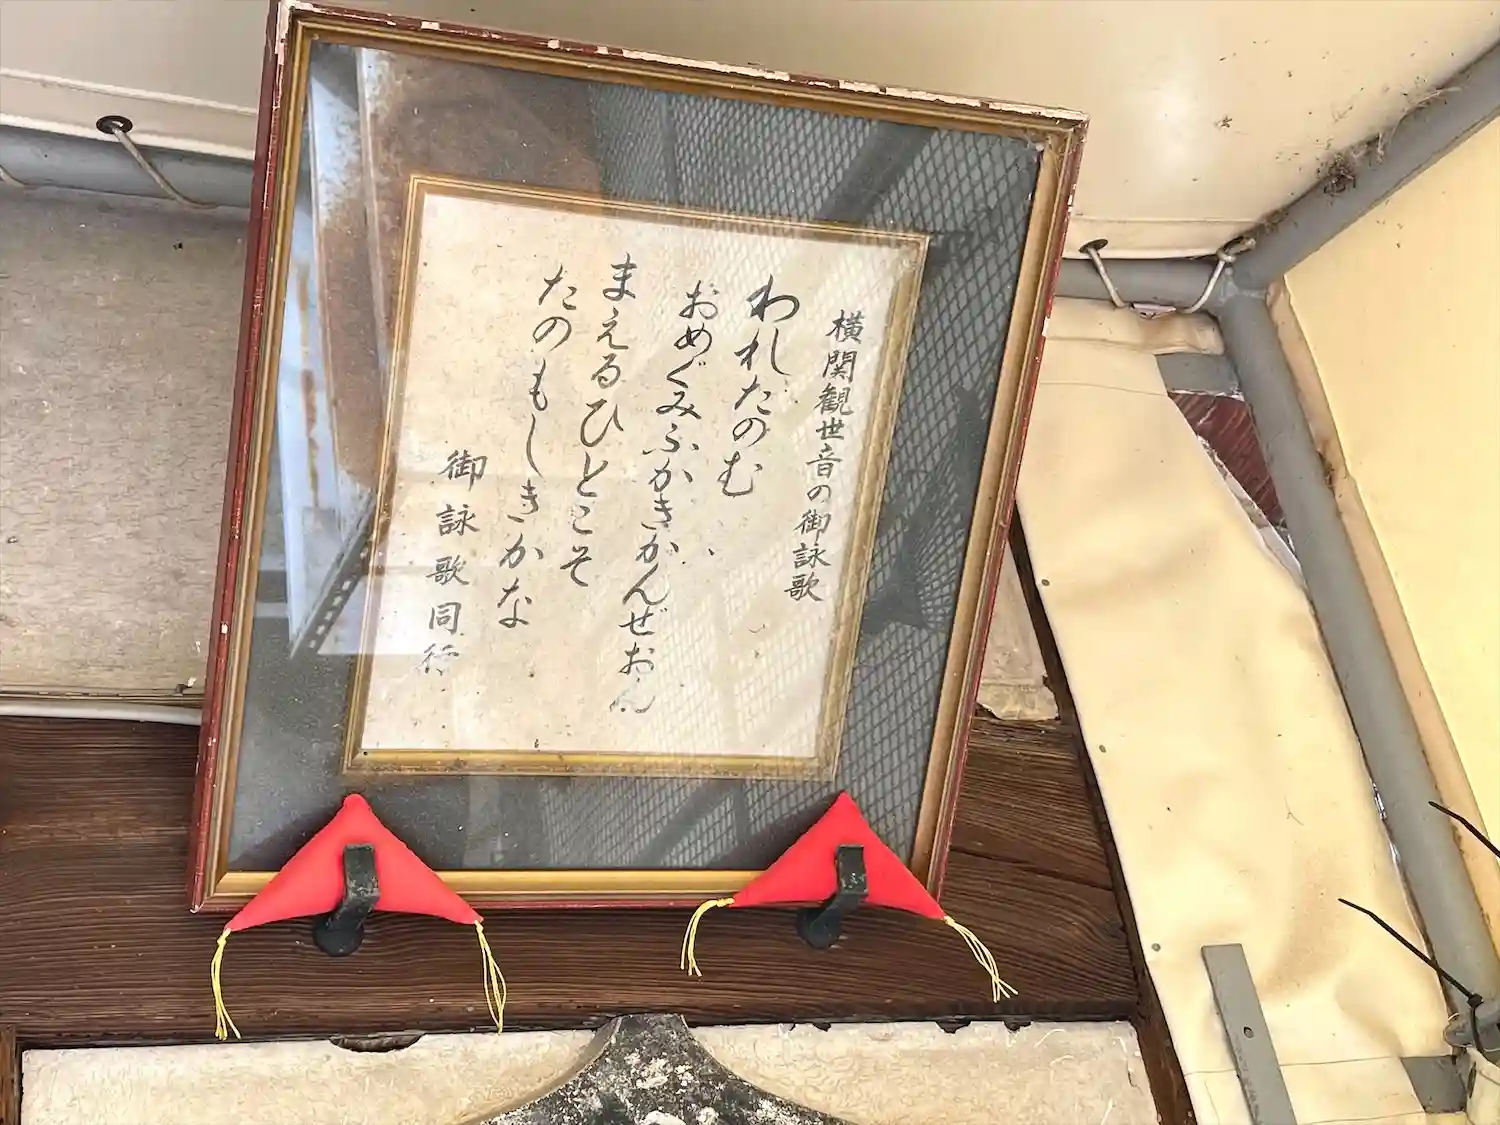 横関観世音の御詠歌
われたのむ
おめぐみふかきかんぜおん
まえるひとこそ
たのもしきかな
御詠歌同行